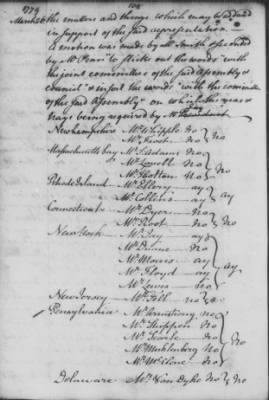 1779
March 26 the matters and things which may be adduced
in support of the said representation —
A motion was made by Mr Smith seconded
by Mr Penn to strike out the words "with
the joint committee of the said Assembly &
Council" & insert the words "with the committee
of the said Assembly" on which the yeas &
Nays being required by Mr
New hampshire Mr Whipple no } no
Mr Frost no
Massachusetts bay Mr S Adams no } no
Mr Lovell no
Mr Holten no
Rhode Island Mr Ellery ay } ay
Mr Collins ay
Connecticut Mr Dyer no } no
Mr Root no
New York Mr Jay ay } ay
Mr Duane no
Mr Morris ay
Mr Floyd ay
Mr Lewis no
New Jersey Mr Fell no }
Pensylvania Mr Armstrong no } no
Mr Shippen no
Mr Searle no
Mr Muhlenberg no
Mr McClene no
Delaware Mr Van Dyke no } no